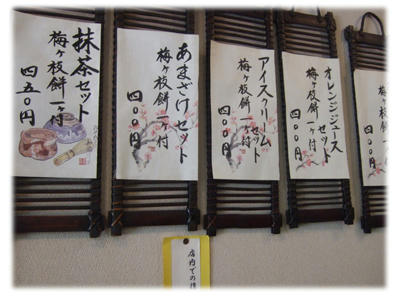 抹茶セット
梅ヶ枝餅一ヶ付
四五〇円
あまざけセット
梅ヶ枝餅一ヶ付
四〇〇円
アイスクリームセット
梅ヶ枝餅一ヶ付
四〇〇円
オレンジジュースセット
梅ヶ枝餅一ヶ付
四〇〇円
店内での